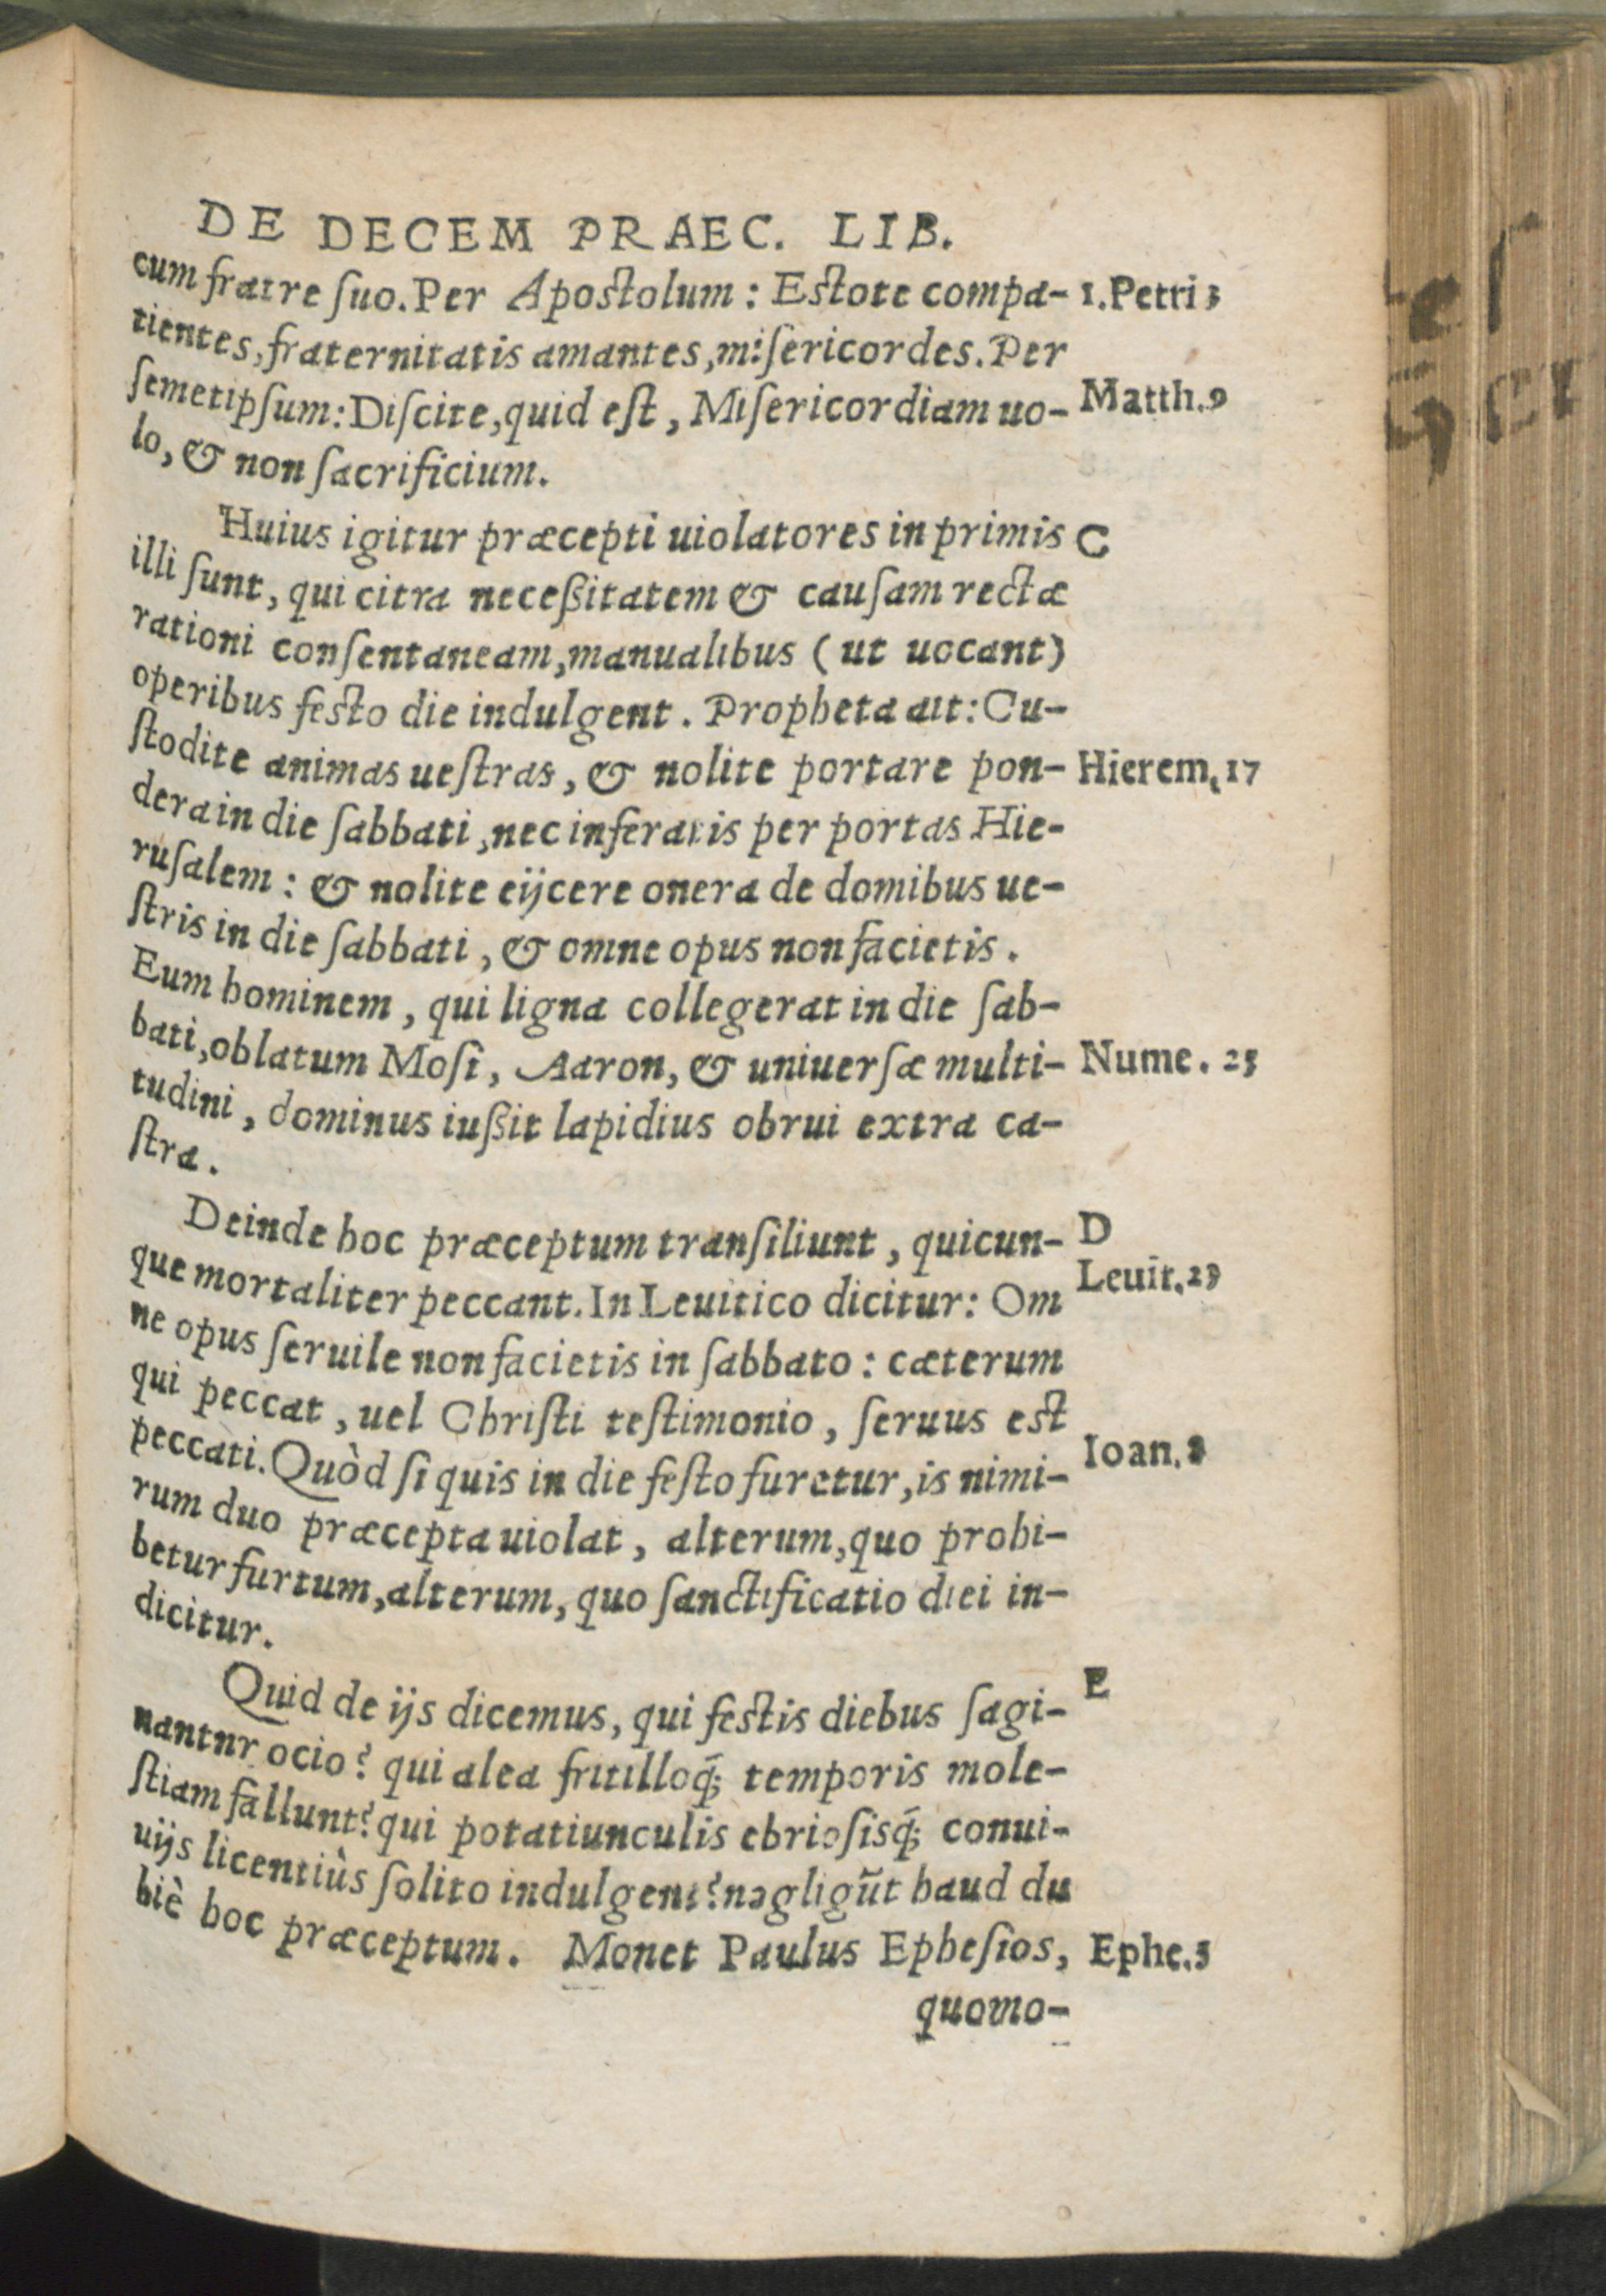 DE DECEM PRAEC. LIB.
cum fratre ſuo. Per Apostolum: Estote compa- 1. Petri 3
tientes, fraternitatis amantes, miſericordes. Per
ſemetipſum: Diſcite, quid eſt, Miſericordiam uo- Matth. 9
lo, & non ſacrificium.
Huius igitur præcepti uiolatores in primis C
illi ſunt, qui citra neceßitatem & cauſam rectæ
rationi conſentaneam, manualibus (ut uocant)
operibus festo die indulgent. Propheta ait: Cu-
ſtodite animas ueſtras, & nolite portare pon- Hierem. 17
dera in die ſabbati, nec inferatis per portas Hie-
ruſalem: & nolite eijcere onera de domibus ue-
ſtris in die ſabbati, & omne opus non facietis.
Eum hominem, qui ligna collegerat in die ſab-
bati, oblatum Moſi, Aaron, & uniuerſæ multi- Nume.
tudini, dominus iußit lapidius obrui extra ca-
ſtra.
Deinde hoc præceptum tranſiliunt, quicun- D
que mortaliter peccant. In Leuitico dicitur: Om Leuit.
ne opus ſeruile non facietis in ſabbato: cæterum
qui peccat, uel Chriſti teſtimonio, ſeruus est
peccati. Quòd ſi quis in die feſto furetur, is nimi- Ioan. 8
rum duo præcepta uiolat, alterum, quo prohi-
betur furtum, alterum, quo ſanctificatio diei in-
dicitur.
Quid de ijs dicemus, qui festis diebus ſagi- E
nantur ocio? qui alea fritilloq́; temporis mole-
ſtiam fallunt? qui potatiunculis ebrioſisq́; conui-
uijs licentiùs ſolito indulgent? negligũt haud du
biè hoc præceptum. Monet Paulus Epheſios, Ephe. 5
quomo-